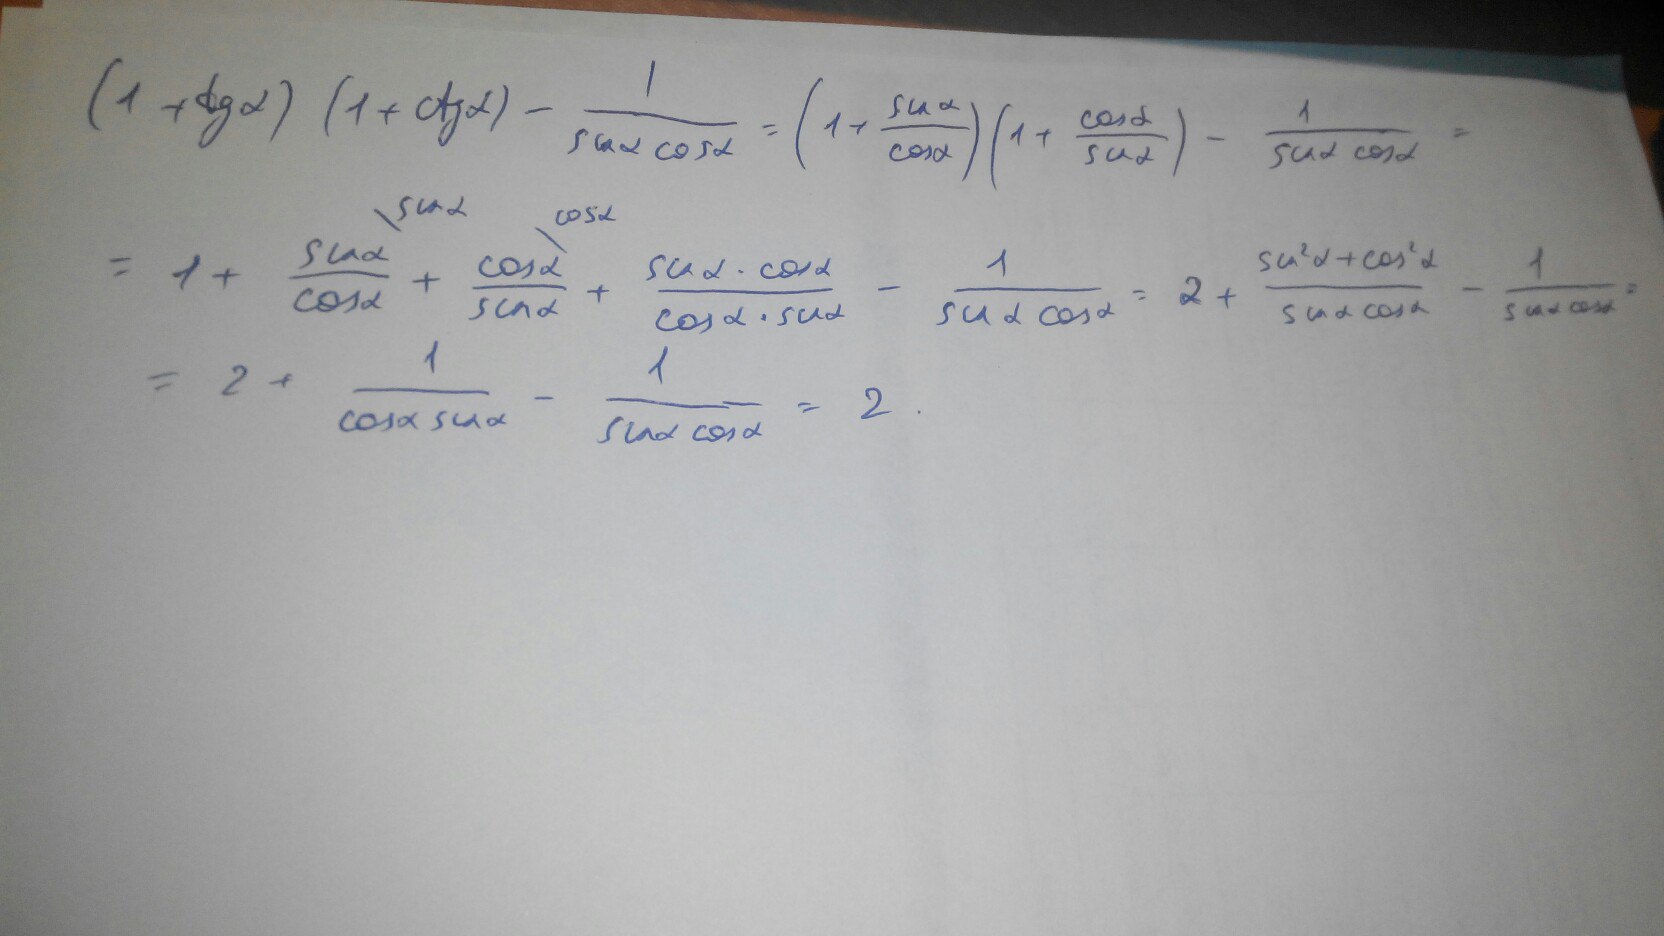 (1 + tg α) (1 + ctg α) − 1/(sin α cos α) = (1 + sin α/cos α)(1 + cos α/sin α) − 1/(sin α cos α) =
= 1 + sin α/cos α \sin α + cos α/sin α \cos α + (sin α · cos α)/(cos α · sin α) − 1/(sin α cos α) = 2 + (sin² α + cos² α)/(sin α cos α) − 1/(sin α cos α) =
= 2 + 1/(cos α sin α) − 1/(sin α cos α) = 2.